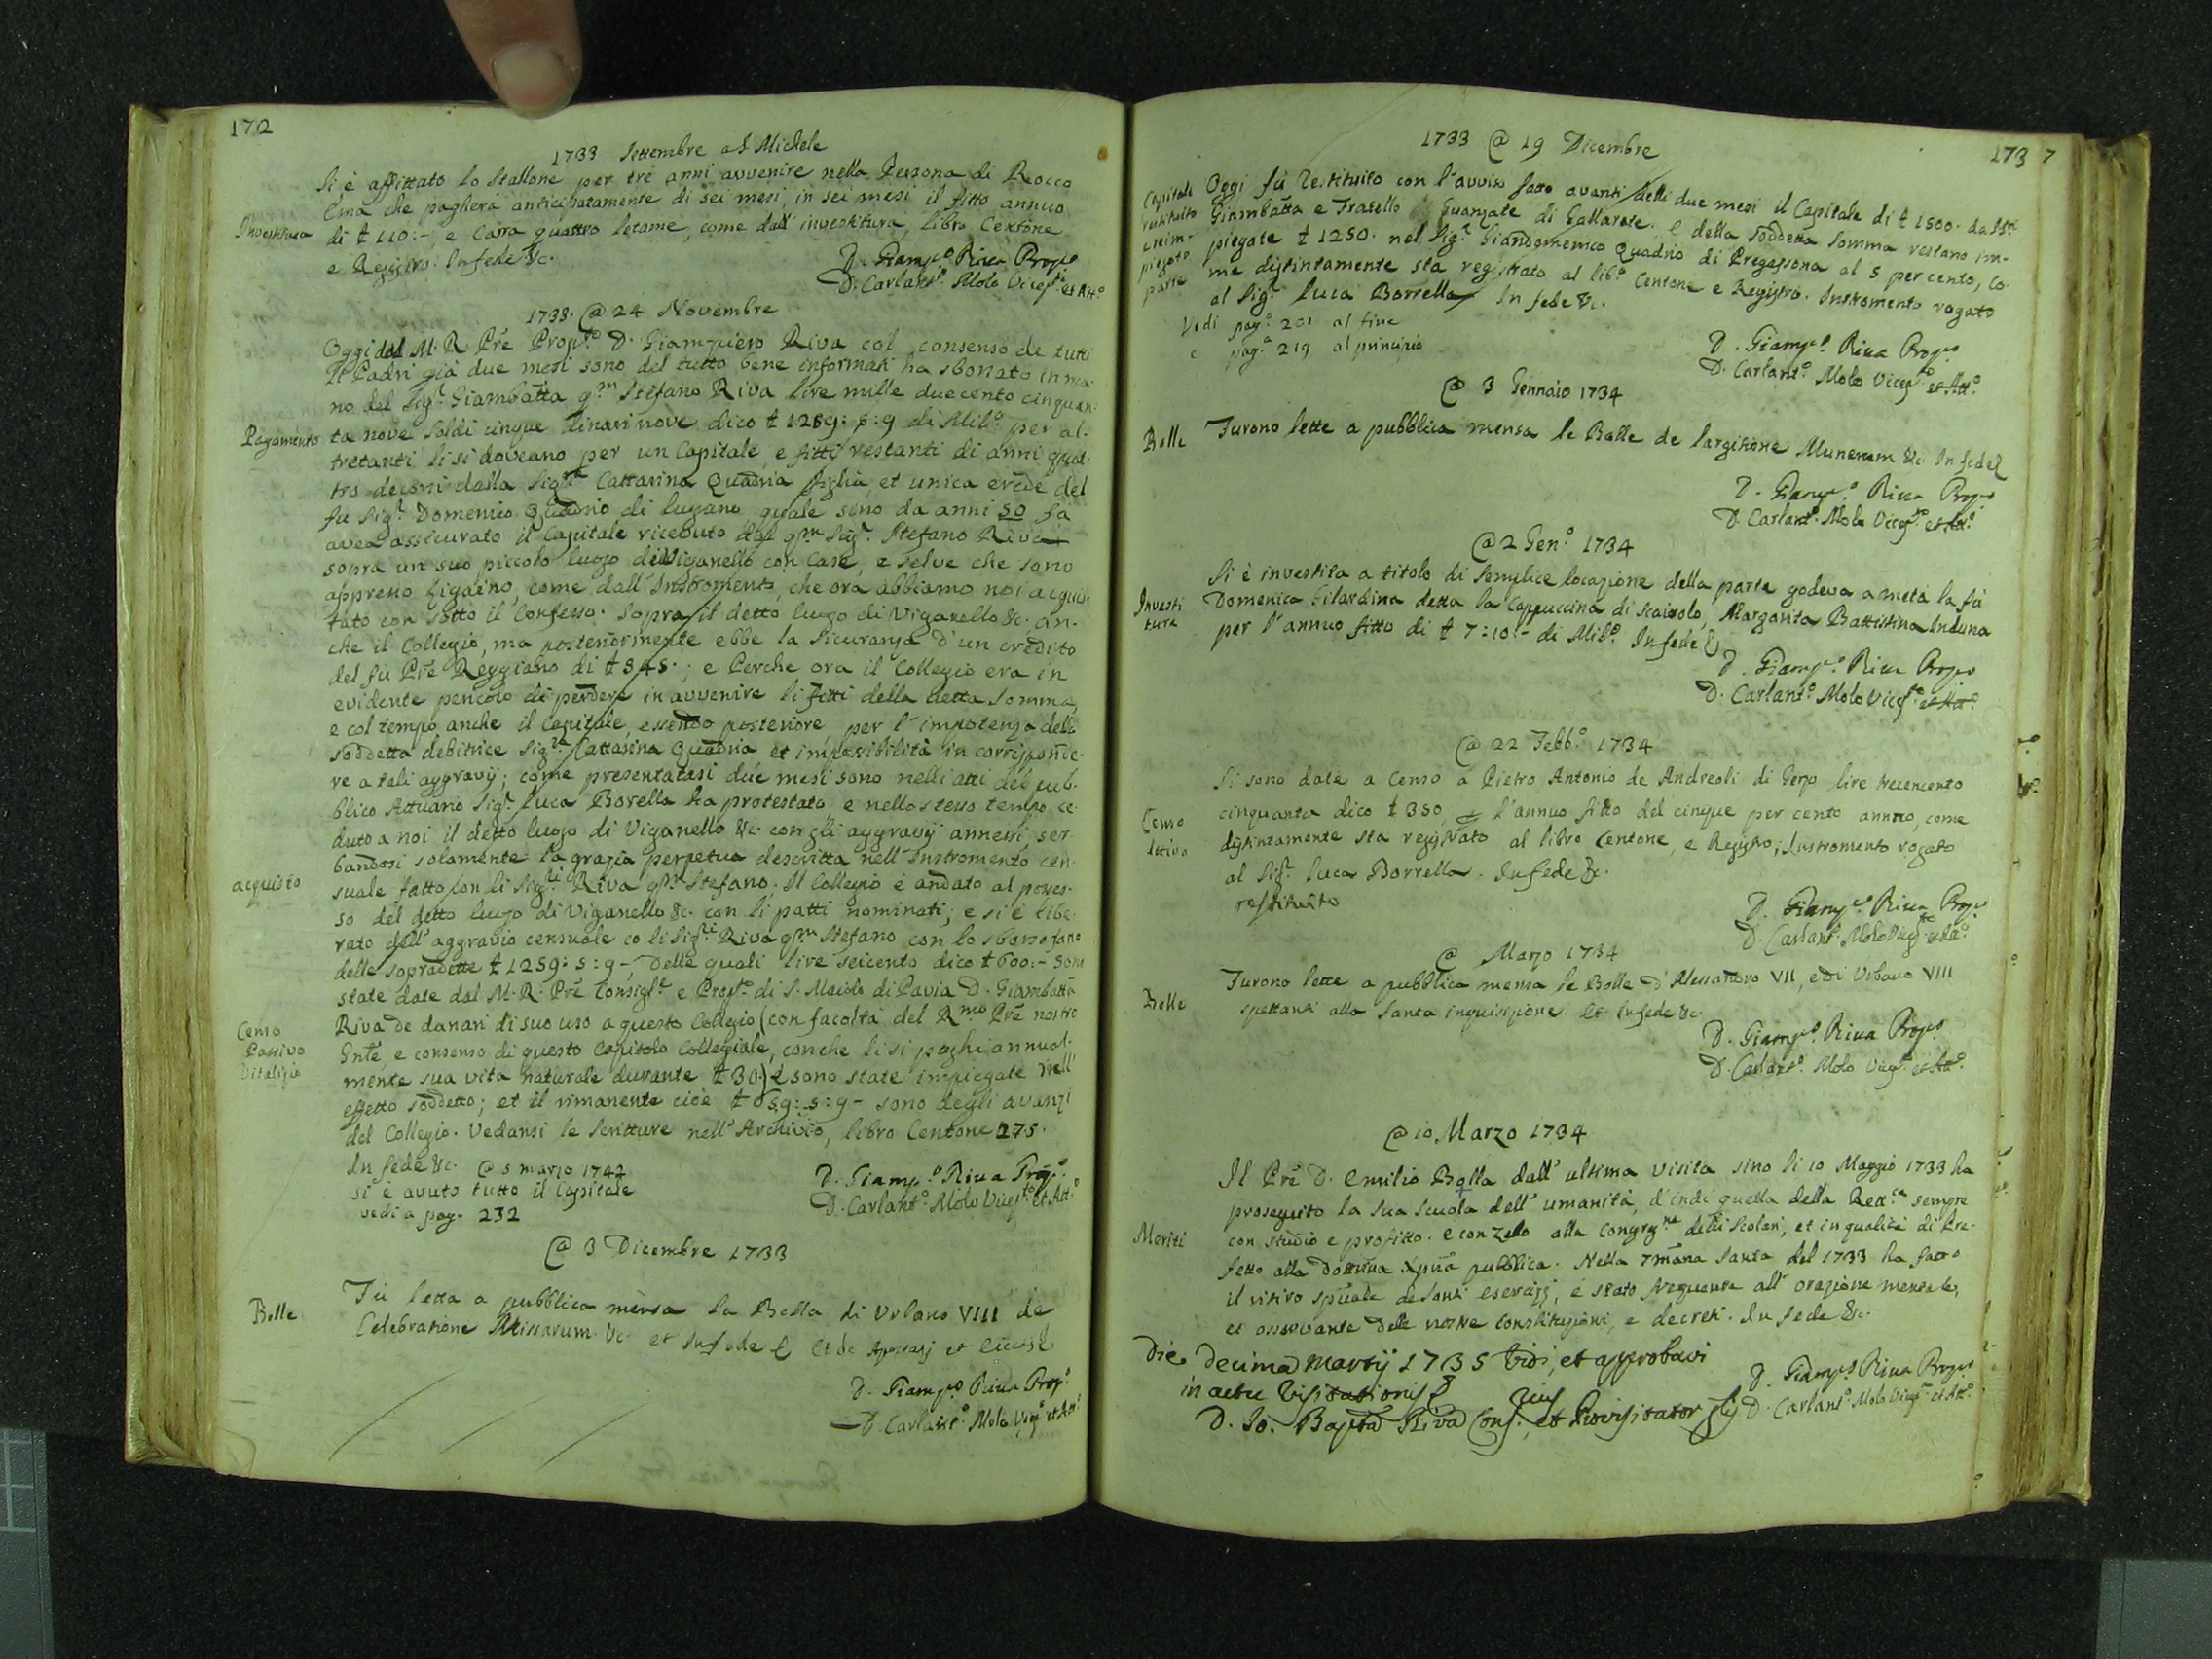 172
1733 Settembre a S Michele
Si è affittato lo Stallone per trè anni avvenire nella Persona di Rocco
che pagherà anticipatamente di sei mesi, in sei mesi il fitto annuo
Investitura
di ł 110:-, e Carra quattro letame, come dall' investitura, libro Centone
e Registro. In fede &c.
D. Giamp.o Riva Prop.o
D. Carlant.o Molo Vicep.to et Att.o
1733. @ 24 Novembre
Oggi dal M. R. Prē Prop.to D. Giampiero Riva col consenso de tutti
li Padri già due mesi sono del tutto bene informati ha sborsato in ma-
no del Sig.r Giambatta q.m Stefano Riva lire mille duecento cinquan-
Pagamento
ta nove soldi cinque dinari nove dico ł 1259: 5: 9 di Mil.o per al-
tretanti li si doveano per un Capitale, e fitti restanti di anni quat-
tro decorsi dalla Sig.ra Cattarina Quadria figlia, et unica erede del
fu Sig.r Domenico Quadrio di Lugano quale sino da anni 50 fà
avea assicurato il Capitale ricevuto dal q.m Sig.r Stefano Riva
sopra un suo piccolo luogo di Viganello con Case, e selve che sono
appresso Ligaino, come dall' Instromento, che ora abbiamo noi acquis-
tato con sotto il Confesso. Sopra il detto luogo di Viganello &c. an-
che il Collegio, ma posteriormente ebbe la sicuranza d'un credito
del fù Prē Reggiano di ł 345.; e Perche ora il Collegio era in
evidente pericolo di perdere in avvenire li fitti della detta somma,
e col tempo anche il Capitale, essendo posteriore per l'impotenza della
soddetta debitrice Sig.ra Cattarina Quadria et impossibilità in corrisponde-
re a tali aggravij; come presentatasi due mesi sono nelli atti del pub-
blico Attuario Sig.r Luca Borella ha protestato e nello stesso tempo ce-
duto a noi il detto luogo di Viganello &c. con gli aggravij annessi, ser-
bandosi solamente la grazia perpetua descritta nell' Instromento cen-
acquisto
suale fatto con li Sig.ri Riva q.m Stefano. Il Collegio è andato al posses-
so del detto luogo di Viganello &c. con li patti nominati; e si è libe-
rato dall' aggravio censuale co li Sig.ri Riva q.m Stefano con lo sborso fatto
delle sopradette ł 1259: 5: 9-, Delle quali lire seicento dico ł 600:- sono
state date dal M. R. Prē Consigl.re e Prop.to di S. Maiolo di Pavia D. Giambatta
Censo Passivo Vitalizio
Riva de danari di suo uso a questo Collegio (con facoltà del R.mo Prē nostro
Gnte, e consenso di questo Capitolo Collegiale, con che li si paghi annual-
mente sua vita naturale durante ł 30.) e sono state impiegate nell'
effetto soddetto; et il rimanente cioè ł 659: 5: 9- sono degli avanzi
del Collegio. Vedansi le Scritture nell' Archivio, libro Centone 275.
In fede &c. @ 5 marzo 1742
si è avuto tutto il Capitale
vedi a pag. 232
D. Giamp.o Riva Prop.o
D. Carlant.o Molo Vicep.to et Att.o
@ 3 Dicembre 1733
Bolle
Fù letta a pubblica mensa la Bolla di Urbano VIII de
Celebratione Missarum &c. et In fede
D. Giamp.o Riva Prop.o
D. Carlant.o Molo Vicep.o et Att.o
173 7
1733 @ 19 Dicembre
Capitale restituito e reim-piegato parte
Oggi fù restituito con l'avviso fatto avanti delli due mesi il Capitale di ł 1500. da SS.ri
Giambatta e Fratello Guanzate di Gallarate. E della soddetta somma restano im-
piegate ł 1250. nel Sig.r Giandomenico Quadrio di Pregassona al 5 per cento, co-
me distintamente sta registrato al lib.o Centone e Registro. Instromento rogato
al Sig.r Luca Borrella. In fede &c.
Vedi pag.a 201 al fine
e pag.a 219 al principio
D. Giamp.o Riva Prop.o
D. Carlant.o Molo Vicep.to et Att.o
@ 3 Gennaio 1734
Bolle
Furono lette a pubblica mensa le Bolle de largitione Munerum &c. In fede
D. Giamp.o Riva Prop.o
D. Carlant.o Molo Vicep.to et Att.o
@ 2 Gen.o 1734
Investi
tura
Si è investita a titolo di semplice locazione della parte godeva a metà la fù
Domenica Gilardina detta la Cappuccina di Scairolo, Margarita Battistina Induna
per l'annuo fitto di ł 7:10:- di Mil.o In fede
D. Giamp.o Riva Prop.o
D. Carlant.o Molo Vicep.to et Att.o
@ 22 Febb.o 1734
Si sono date a Censo a Pietro Antonio de Andreoli di lire trecencento
Censo
Attivo
cinquanta dico ł 350, l'annuo fitto del cinque per cento annuo, come
distintamente sta registrato al libro Centone, e Registro; Instromento rogato
al Sig.r Luca Borrella. In fede &c.
restituito
D. Giamp.o Riva Prop.o
D. Carlant.o Molo Vicep.to et Att.o
@ Marzo 1734
Bolle
Furono lette a pubblica mensa le Bolle d'Alessandro VII, e di Urbano VIII
spettanti alla Santa inquisizione. Et In fede &c.
D. Giamp.o Riva Prop.o
D. Carlant.o Molo Vicep.o et Att.o
@ 10 Marzo 1734
Il Prē D. Emilio Bolla dall' ultima visita sino li 10 Maggio 1733 ha
proseguito la sua scuola dell' umanità, d'indi quella della Rett.ca sempre
Meriti
con studio e profitto. e con zelo alla Congreg.ne delli Scolari, et in qualità di Pre-
fetto alla Dottrina Xpnā pubblica. Nella 7mana Santa del 1733 ha fatto
il ritiro spūale de santi esercizj, è stato frequente all' orazione mentale,
et osservante delle nostre Constituzioni, e decreti. In fede &c.
Die decima Martij 1735 Vidi, et approbavi
in actu Visitationis
D. Giamp.o Riva Prop.o
D. Carlant.o Molo Vicep.o et Att.o
D. Jo. Bapta Riva Cons. et Provisitator